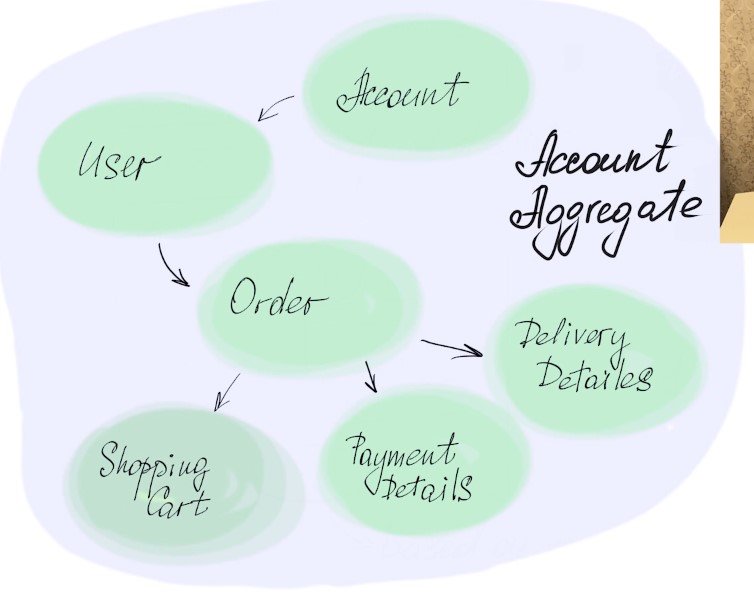 Account
User
Account
Aggregate
Order
Delivery
Detailes
Shopping
Cart
Payment
Details